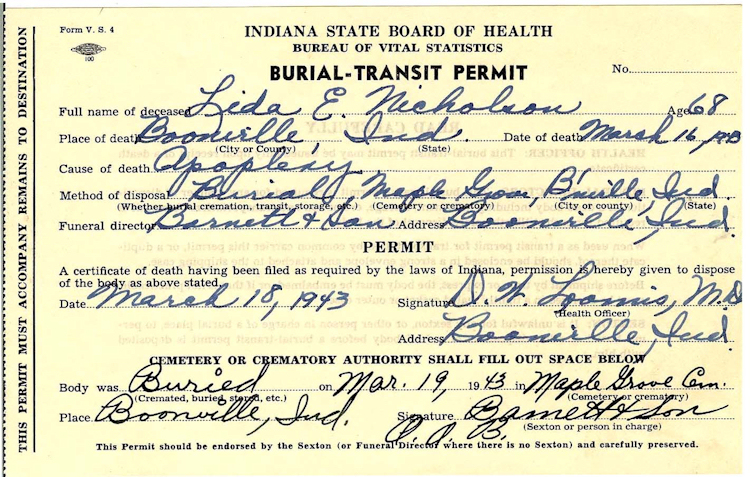 Form V. S. 4
100
INDIANA STATE BOARD OF HEALTH
BUREAU OF VITAL STATISTICS
BURIAL-TRANSIT PERMIT
No.
THIS PERMIT MUST ACCOMPANY REMAINS TO DESTINATION
Full name of deceased Lida E Nicholson Age 68
Place of death Boonville, Ind. Date of death March 16, 1943
(City or County) (State)
Cause of death Apoplexy
Method of disposal Burial, Maple Grove, B'nville, Ind.
(Whether burial cremation, transit, storage, etc.) (Cemetery or crematory) (City or county) (State)
Funeral director Barnett & Son Address Boonville, Ind.
PERMIT
A certificate of death having been filed as required by the laws of Indiana, permission is hereby given to dispose
of the body as above stated.
Date March 18, 1943 Signature O. W. Loomis, M.D
(Health Officer)
Address Boonville, Ind.
CEMETERY OR CREMATORY AUTHORITY SHALL FILL OUT SPACE BELOW
Body was Buried on Mar. 19, 1943 in Maple Grove Cem.
(Cremated, buried, stored, etc.) (Cemetery or crematory)
Place Boonville, Ind. Signature Barnett & Son
(Sexton or person in charge)
This Permit should be endorsed by the Sexton (or Funeral Director where there is no Sexton) and carefully preserved.